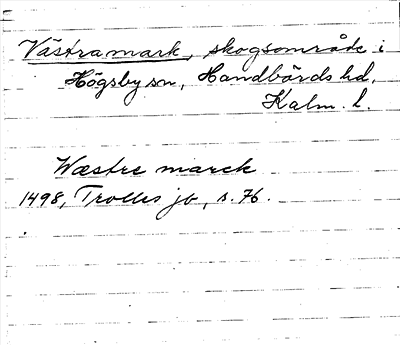 Västra mark, skogsområde i
Högsby sn, Handbörds hd,
Kalm. l.
Wæstre marck
1498, Trolles jb, s. 76.